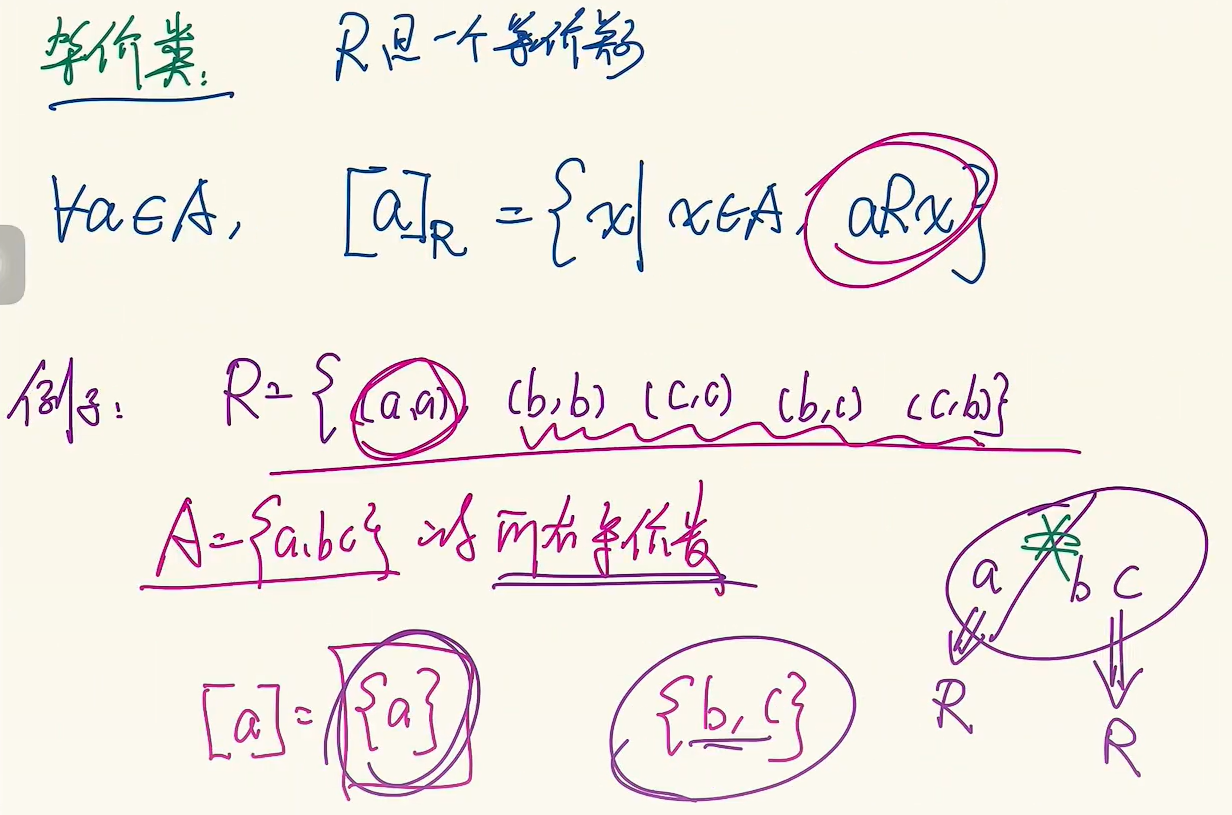 等价类: R是一个等价关系
∀a∈A, [a]_R = {x| x∈A, aRx}
例子: R={(a,a) (b,b) (c,c) (b,c) (c,b)}
A={a,b,c} 的 所有等价类
a b c
[a]={a} {b,c} R
R